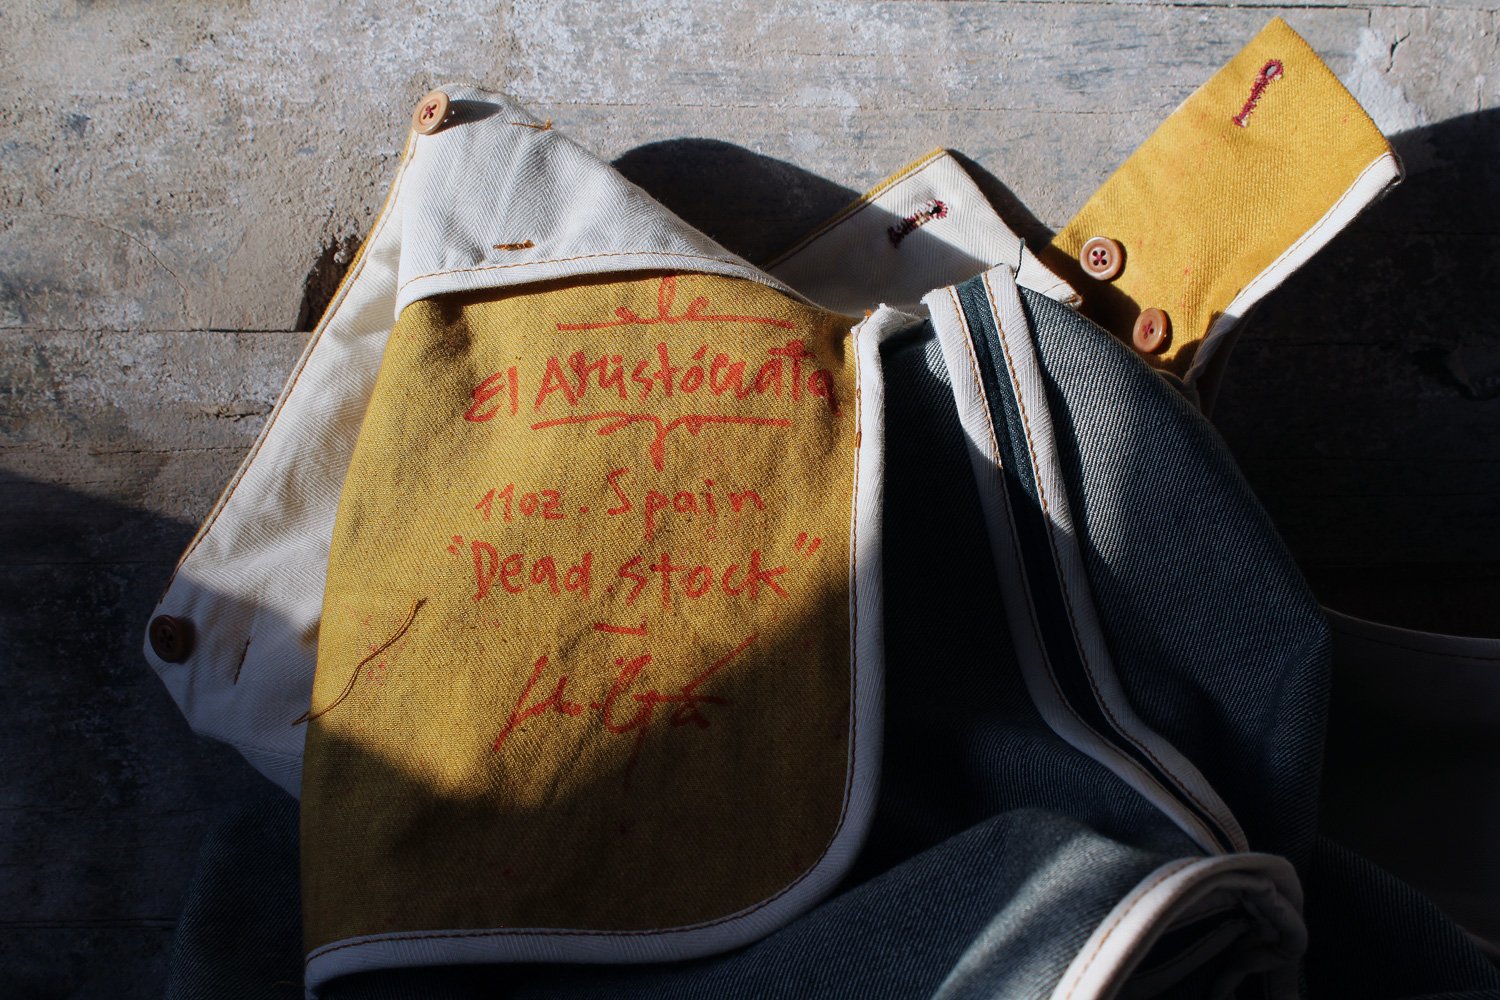 El Aristócrata
11oz. Spain
"Dead stock"